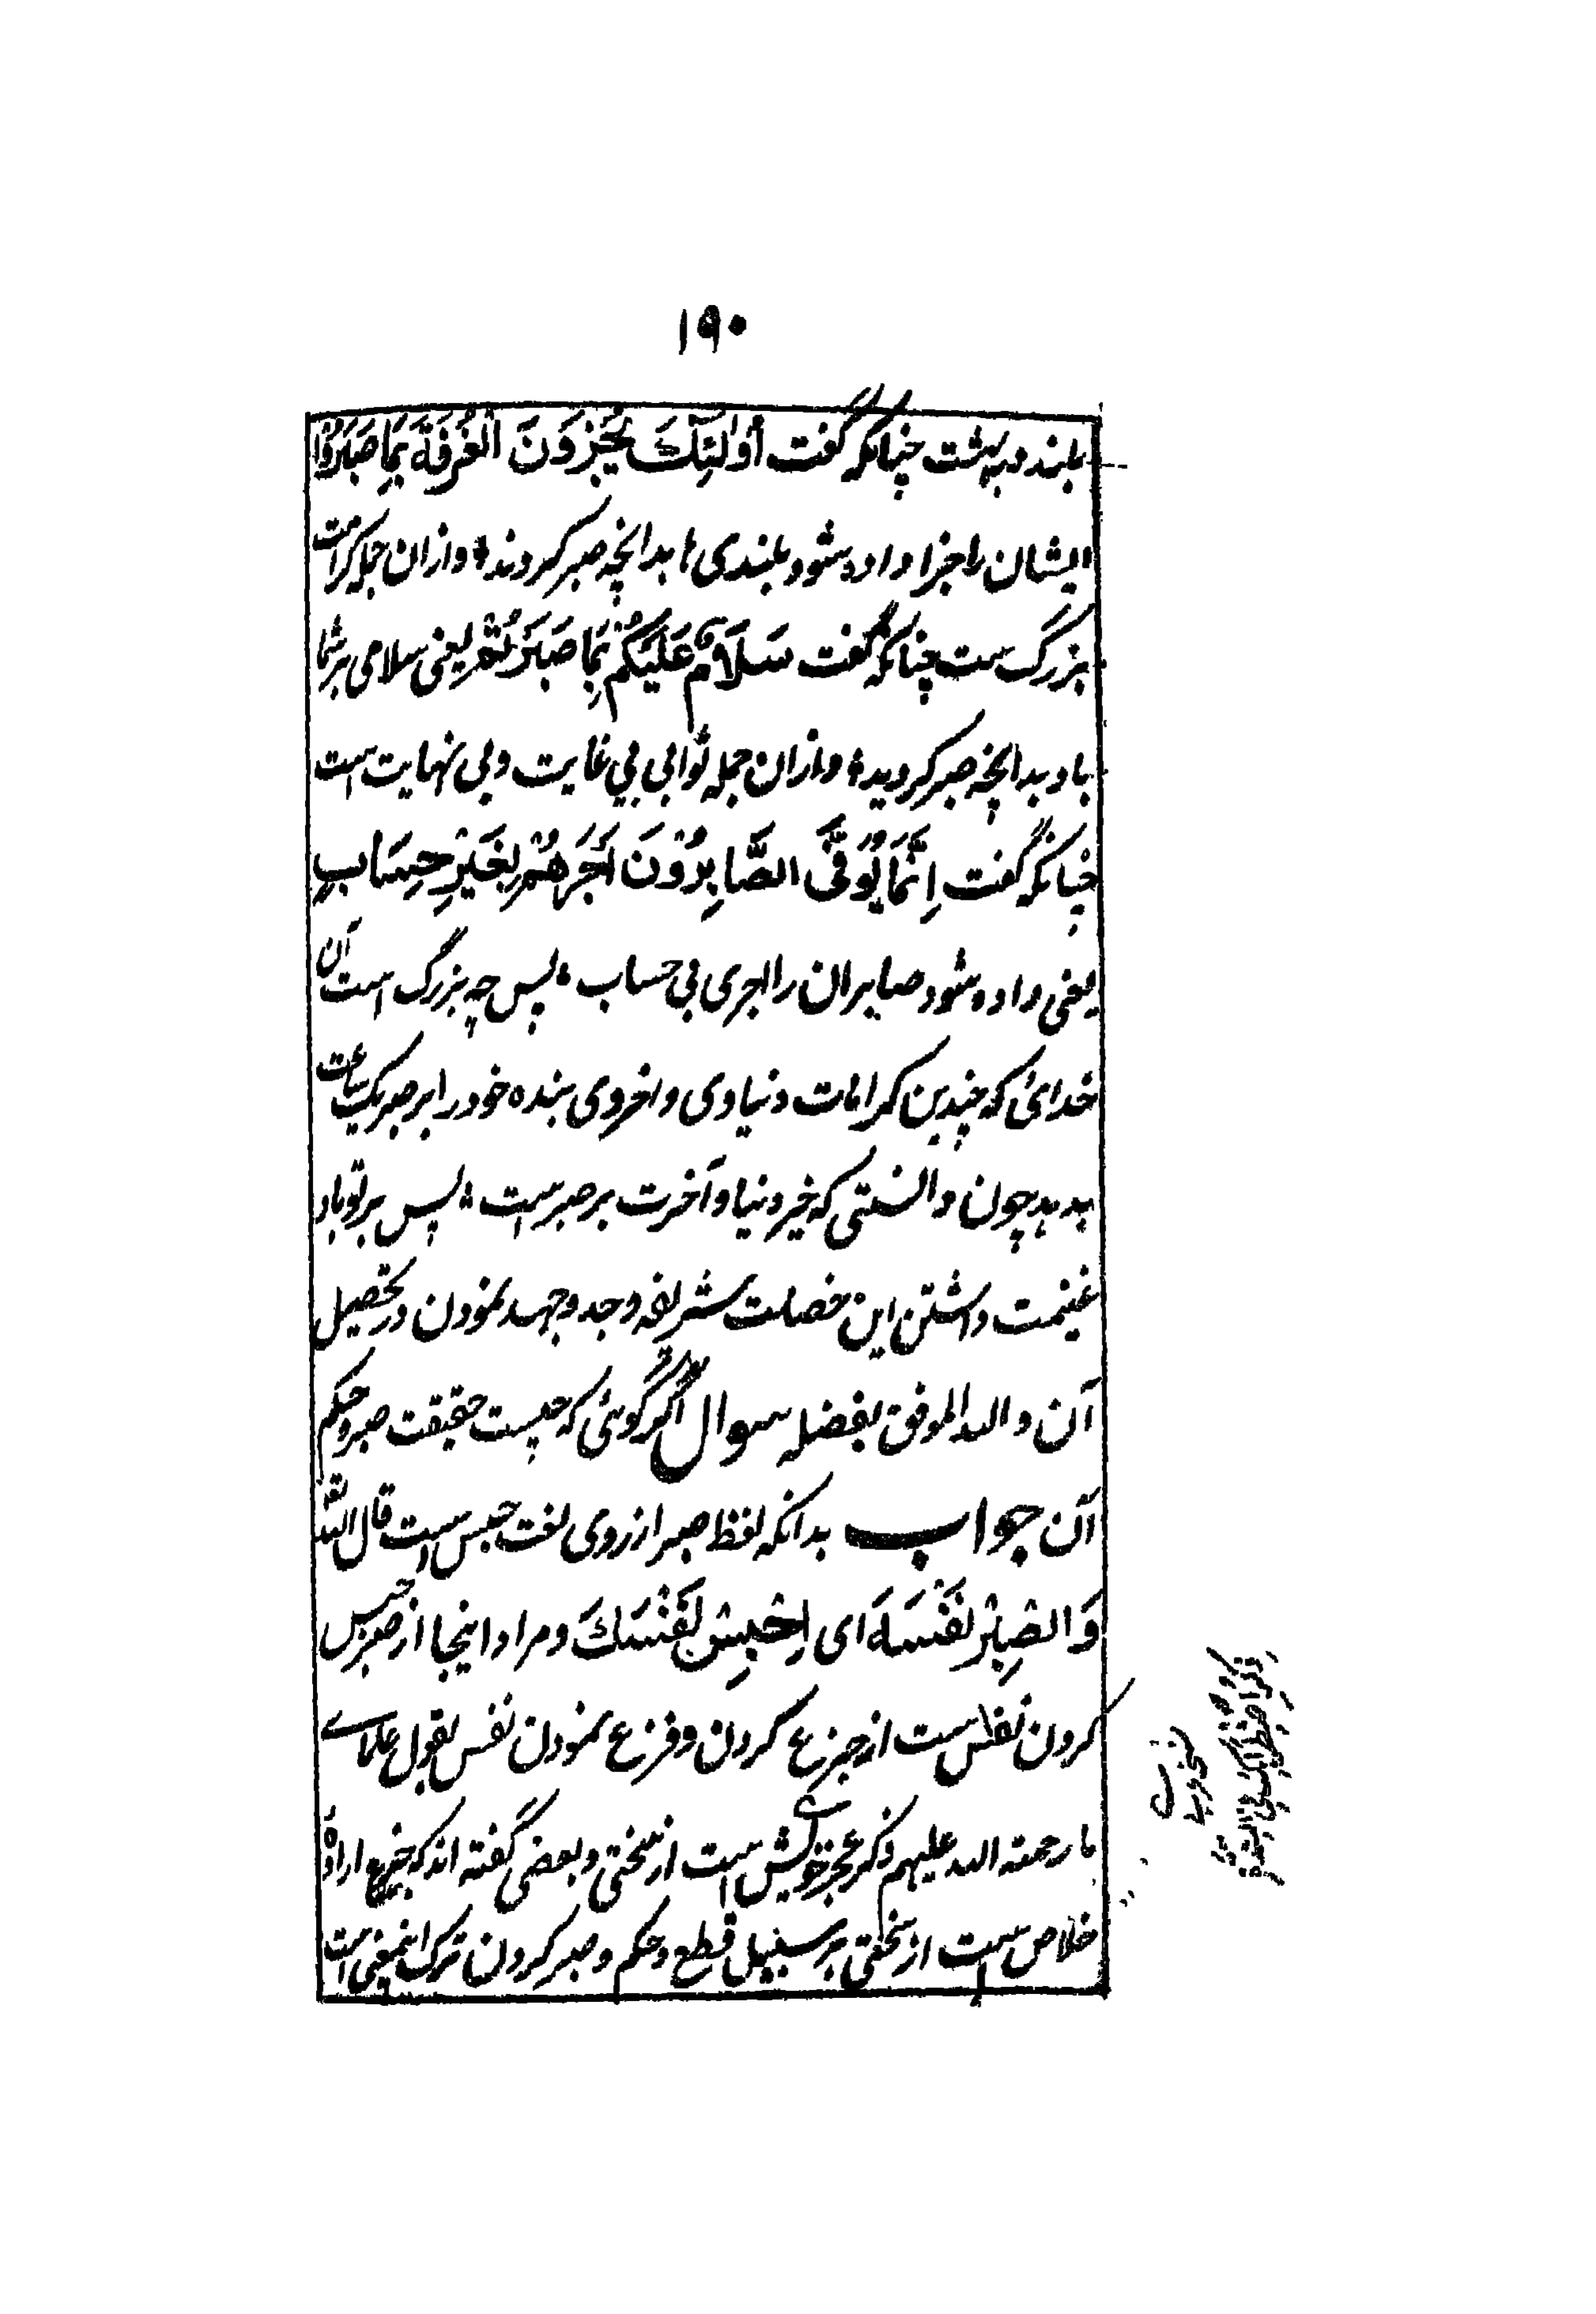 ۱۹۰
بلند در بهشت چنانکه گفت أُولٰئِكَ يُجْزَوْنَ الْغُرْفَةَ بِمَا صَبَرُوا
ایشان را جزا داده شود بلندی ، بدانچه صبر کردند ؛ و ازان جمله کرامت
بزرگ ست چنانکه گفت سَلَامٌ عَلَيْكُمْ بِمَا صَبَرْتُمْ یعنی سلامی بر شما
باد بدانچه صبر کردید ؛ و ازان جمله ثوابی بی غایت و بی نهایت است
چنانکه گفت اِنَّمَا يُوَفَّى الصَّابِرُوْنَ اَجْرَهُمْ بِغَيْرِ حِسَابٍ
یعنی داده شود صابران را اجری بی حساب ؛ پس چه بزرگ است آن
خدائی که چندین کرامات دنیاوی و اخروی بنده خود را بر صبر یکساعت
بدهد چون دانستی که خیر دنیا و آخرت بر صبر ست ؛ پس بر تو باد
غنیمت داشتن این خصلت شریفه و جد و جهد نمودن در تحصیل
آن والله الموفق بفضله سوال اگر گوئی که چیست حقیقت صبر و حکم
آن جواب بدانکه لفظ صبر از روی لغت حبس است قال الله تع
وَ اصْبِرْ نَفْسَهَ ای اِحْبِسْ نَفْسَكَ و مراد اینجا از صبر حبس
کردن نفس ست از جزع کردن و فزع نمودن نفس بقول علمای
ما رحمته الله علیهم ذکر عجز خویش است از سختی و بعضی گفته اند که جزع ارادهٔ
خلاص ست از سختی بر سبیل قطع و حکم و صبر کردن ترک اینمعنی است